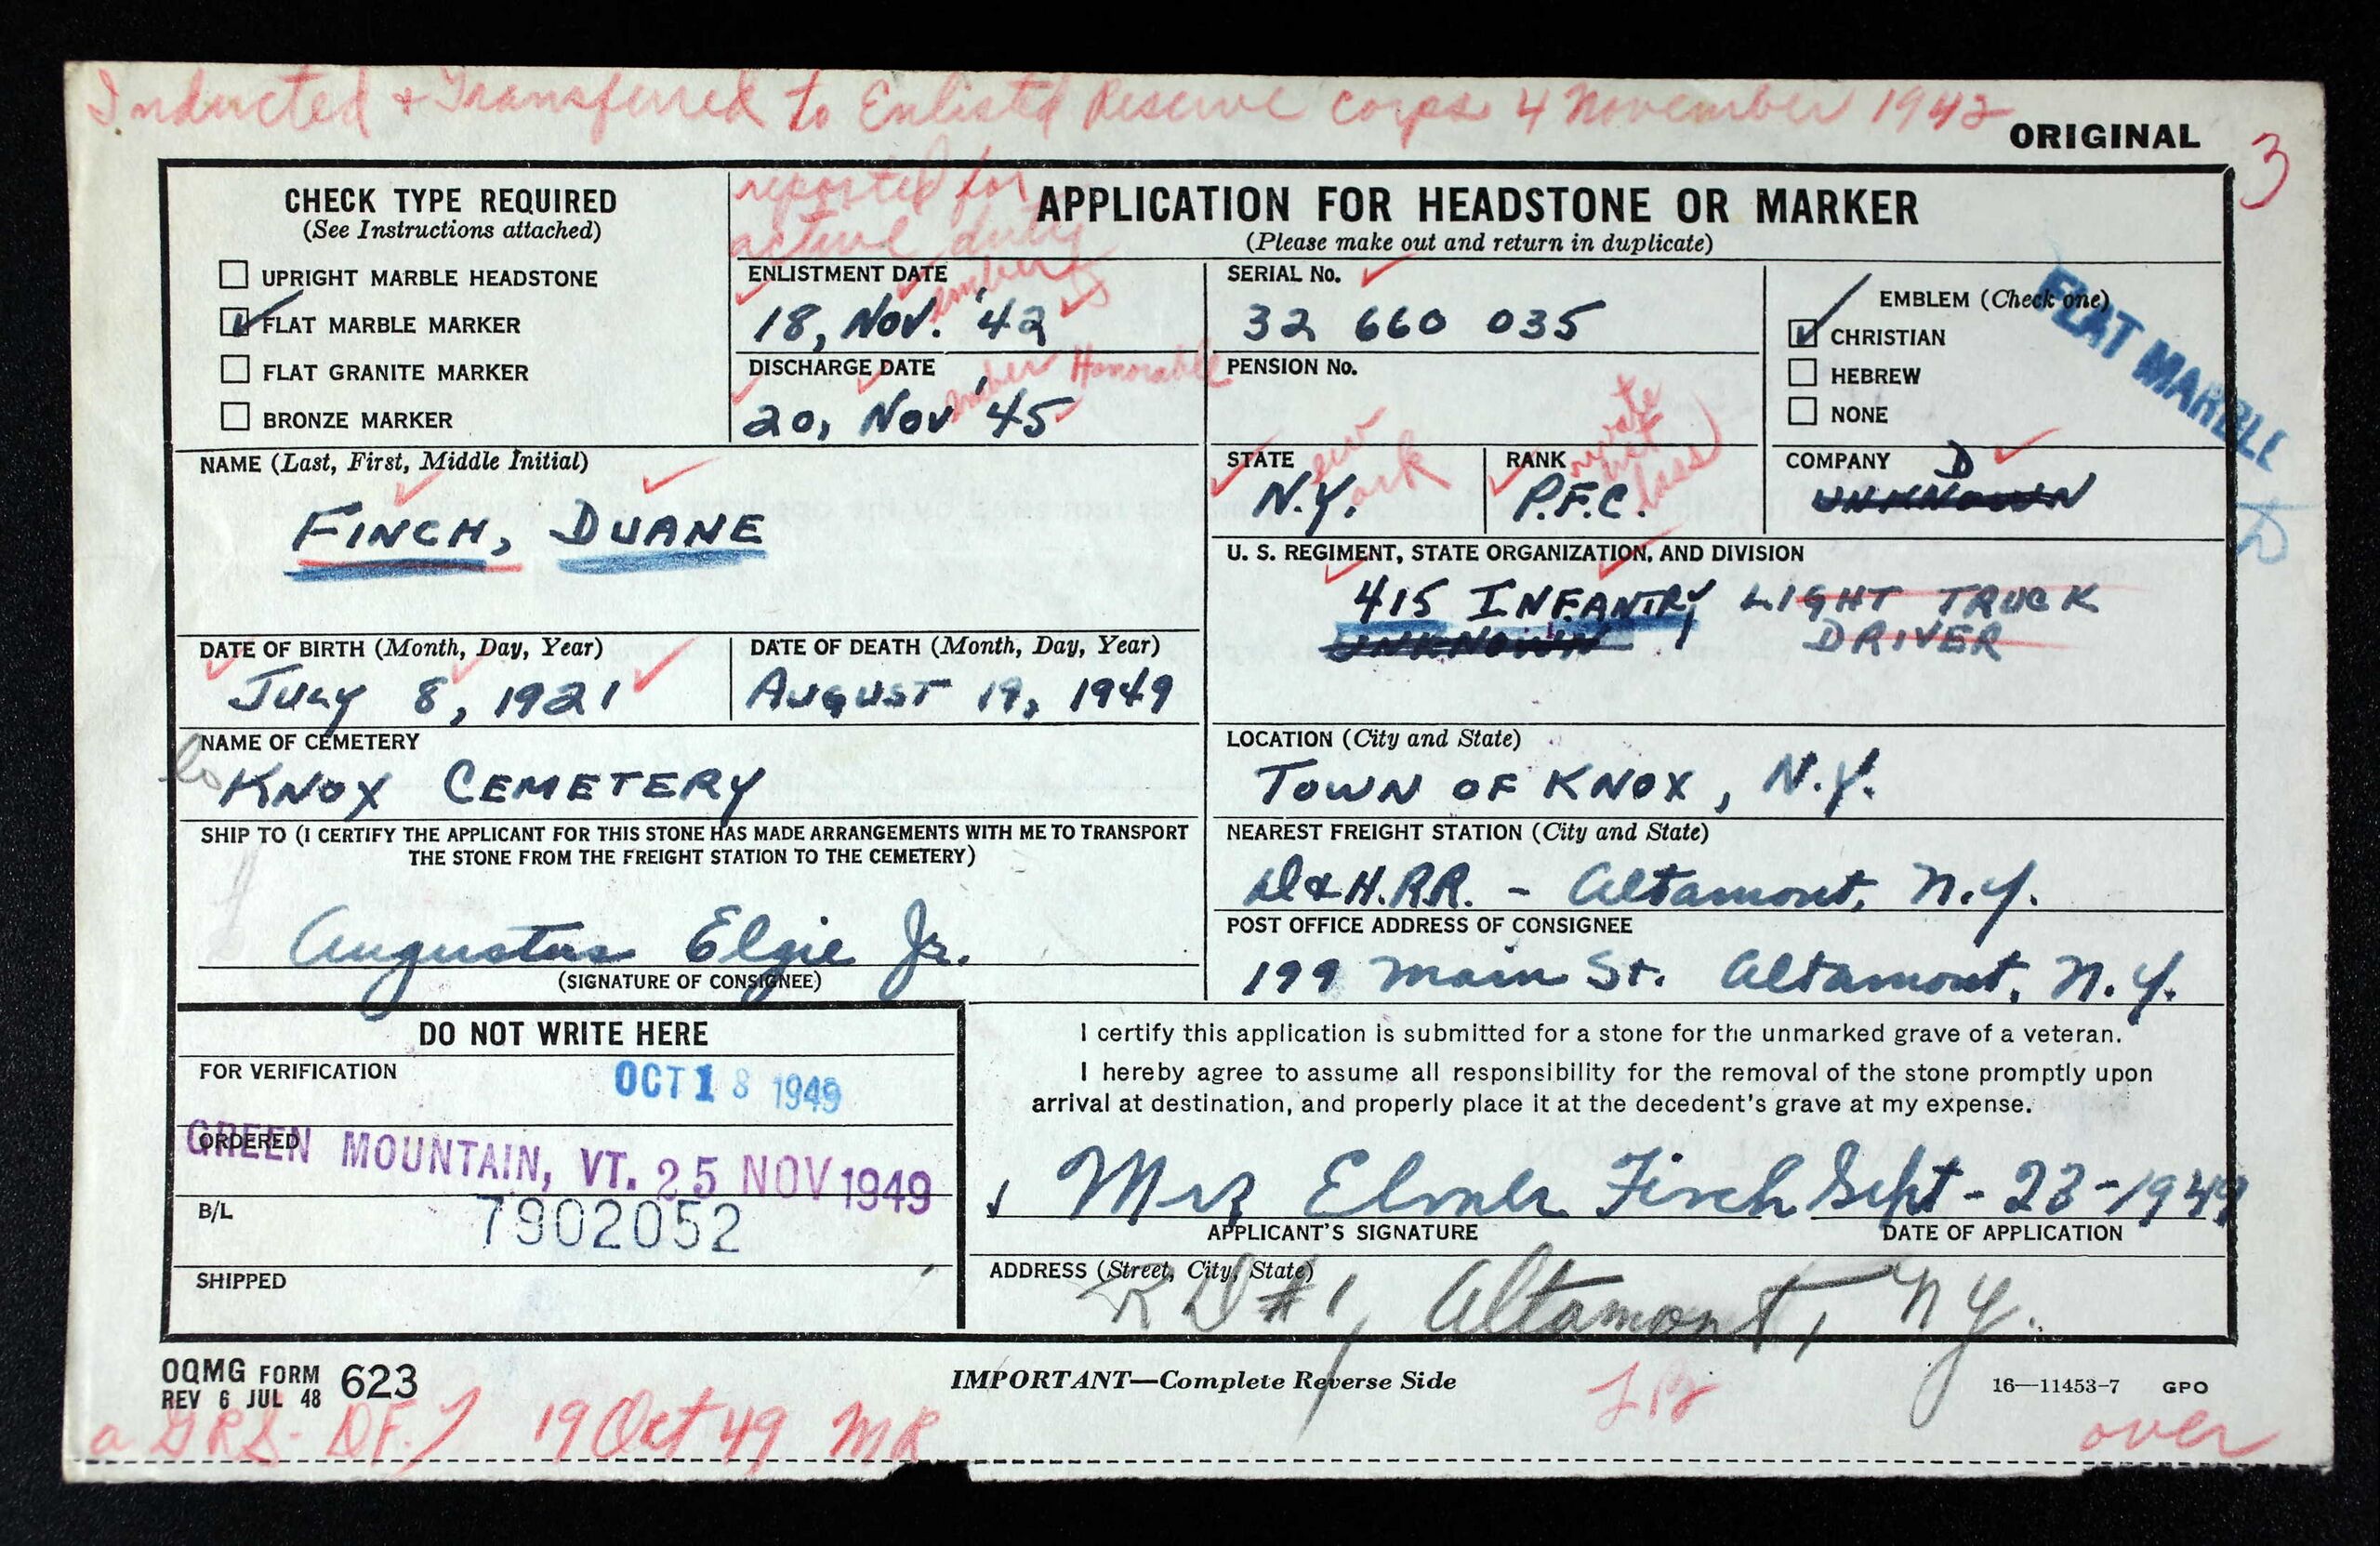 Inducted & Transferred to Enlisted Reserve Corps 4 November 1942
ORIGINAL
3
CHECK TYPE REQUIRED
(See Instructions attached)
UPRIGHT MARBLE HEADSTONE
FLAT MARBLE MARKER
FLAT GRANITE MARKER
BRONZE MARKER
reported for
active duty
APPLICATION FOR HEADSTONE OR MARKER
(Please make out and return in duplicate)
ENLISTMENT DATE
18, Nov. '42
ember
SERIAL No.
32 660 035
EMBLEM (Check one)
CHRISTIAN
HEBREW
NONE
FLAT MARBLE
DISCHARGE DATE
ember Honorable
20, Nov '45
PENSION No.
NAME (Last, First, Middle Initial)
FINCH, DUANE
STATE
N.Y.
ew
ork
RANK
P.F.C.
rivate
irst
lass
COMPANY
D
UNKNOWN
U. S. REGIMENT, STATE ORGANIZATION, AND DIVISION
415 INFANTRY LIGHT TRUCK
UNKNOWN DRIVER
DATE OF BIRTH (Month, Day, Year)
July 8, 1921
DATE OF DEATH (Month, Day, Year)
AUGUST 19, 1949
NAME OF CEMETERY
KNOX CEMETERY
LOCATION (City and State)
TOWN OF KNOX, N.Y.
SHIP TO (I CERTIFY THE APPLICANT FOR THIS STONE HAS MADE ARRANGEMENTS WITH ME TO TRANSPORT
THE STONE FROM THE FREIGHT STATION TO THE CEMETERY)
Augustus Elgie Jr.
(SIGNATURE OF CONSIGNEE)
NEAREST FREIGHT STATION (City and State)
D&H.RR. - Altamont, N.Y.
POST OFFICE ADDRESS OF CONSIGNEE
199 Main St. Altamont, N.Y.
DO NOT WRITE HERE
FOR VERIFICATION
OCT 18 1949
ORDERED
GREEN MOUNTAIN, VT. 25 NOV 1949
B/L
7902052
SHIPPED
I certify this application is submitted for a stone for the unmarked grave of a veteran.
I hereby agree to assume all responsibility for the removal of the stone promptly upon
arrival at destination, and properly place it at the decedent's grave at my expense.
Mrs Elmer Finch Sept - 23 - 1949
APPLICANT'S SIGNATURE
DATE OF APPLICATION
ADDRESS (Street, City, State)
RD #1, Altamont, N.Y.
OQMG FORM 623
REV 6 JUL 48
IMPORTANT—Complete Reverse Side
16—11453-7 GPO
19 Oct 49 MR
over